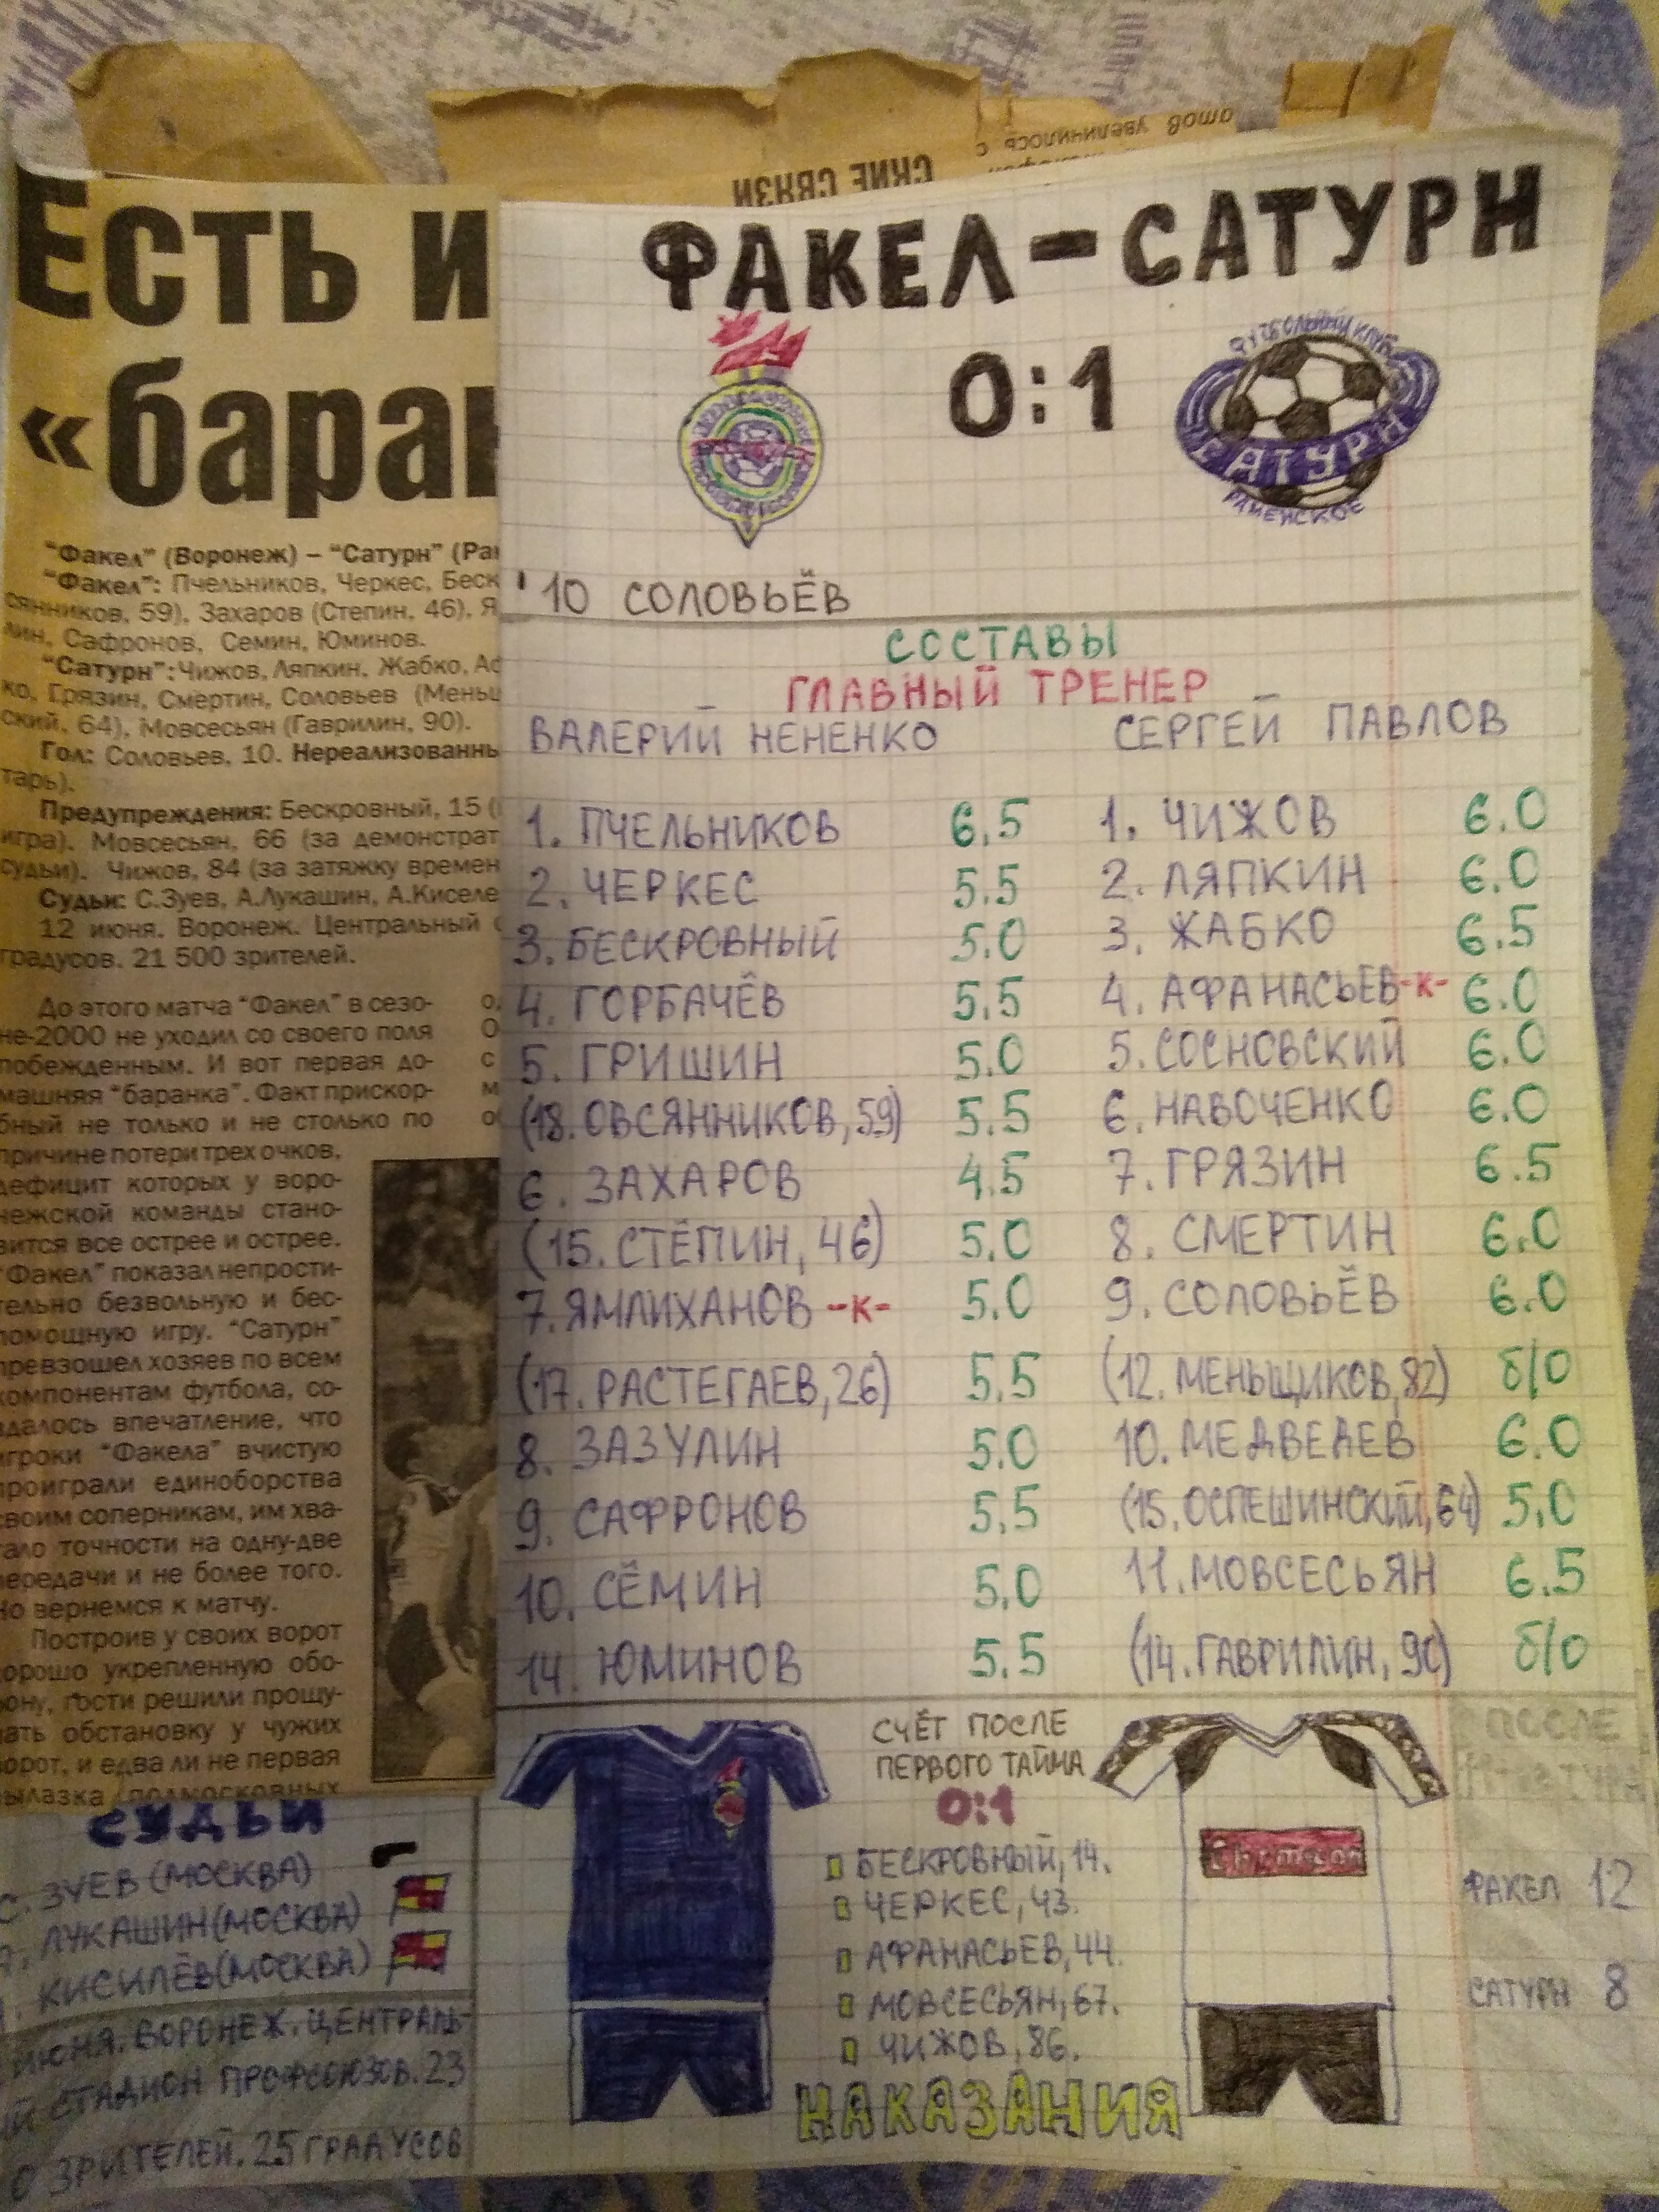 СКИЕ СВЯЗИ
атов увеличилось
Есть и
«баран
"Факел" (Воронеж) – "Сатурн" (Рам
"Факел": Пчельников, Черкес, Беск
сянников, 59), Захаров (Степин, 46), Я
лин, Сафронов, Семин, Юминов.
"Сатурн": Чижов, Ляпкин, Жабко, Аф
ко, Грязин, Смертин, Соловьев (Меньш
ский, 64), Мовсесьян (Гаврилин, 90).
Гол: Соловьев, 10. Нереализованны
тарь).
Предупреждения: Бескровный, 15 (
игра). Мовсесьян, 66 (за демонстрат
судьи). Чижов, 84 (за затяжку времен
Судьи: С.Зуев, А.Лукашин, А.Киселе
12 июня. Воронеж. Центральный с
градусов. 21 500 зрителей.
До этого матча "Факел" в сезо-
не-2000 не уходил со своего поля
побежденным. И вот первая до-
машняя "баранка". Факт прискор-
бный не только и не столько по
причине потери трех очков,
дефицит которых у воро-
нежской команды стано-
вится все острее и острее.
"Факел" показал непрости-
тельно безвольную и бес-
помощную игру. "Сатурн"
превзошел хозяев по всем
компонентам футбола, со-
здалось впечатление, что
игроки "Факела" вчистую
проиграли единоборства
своим соперникам, им хва-
тало точности на одну-две
передачи и не более того.
Но вернемся к матчу.
Построив у своих ворот
хорошо укрепленную обо-
рону, гости решили прощу-
пать обстановку у чужих
ворот, и едва ли не первая
вылазка подмосковных
ФАКЕЛ – САТУРН
0:1
ФУТБОЛЬНЫЙ КЛУБ
САТУРН
РАМЕНСКОЕ
'10 СОЛОВЬЁВ
СОСТАВЫ
ГЛАВНЫЙ ТРЕНЕР
ВАЛЕРИЙ НЕНЕНКО СЕРГЕЙ ПАВЛОВ
1. ПЧЕЛЬНИКОВ 6,5 1. ЧИЖОВ 6.0
2. ЧЕРКЕС 5.5 2. ЛЯПКИН 6.0
3. БЕСКРОВНЫЙ 5.0 3. ЖАБКО 6.5
4. ГОРБАЧЁВ 5.5 4. АФАНАСЬЕВ -К- 6.0
5. ГРИШИН 5.0 5. СОСНОВСКИЙ 6.0
(18. ОВСЯННИКОВ, 59) 5.5 6. НАВОЧЕНКО 6.0
6. ЗАХАРОВ 4.5 7. ГРЯЗИН 6.5
(15. СТЁПИН, 46) 5.0 8. СМЕРТИН 6.0
7. ЯМЛИХАНОВ -К- 5.0 9. СОЛОВЬЁВ 6.0
(17. РАСТЕГАЕВ, 26) 5.5 (12. МЕНЬЩИКОВ, 82) б/о
8. ЗАЗУЛИН 5.0 10. МЕДВЕДЕВ 6.0
9. САФРОНОВ 5.5 (15. ОСПЕШИНСКИЙ, 64) 5,0
10. СЁМИН 5.0 11. МОВСЕСЬЯН 6.5
14. ЮМИНОВ 5.5 (14. ГАВРИЛИН, 90) б/о
СЧЁТ ПОСЛЕ
ПЕРВОГО ТАЙМА
0:1
БЕСКРОВНЫЙ, 14.
ЧЕРКЕС, 43.
АФАНАСЬЕВ, 44.
МОВСЕСЬЯН, 67.
ЧИЖОВ, 86.
НАКАЗАНИЯ
СУДЬИ
С. ЗУЕВ (МОСКВА)
А. ЛУКАШИН (МОСКВА)
КИСИЛЁВ (МОСКВА)
ИЮНЯ. ВОРОНЕЖ. ЦЕНТРАЛЬ-
ЫЙ СТАДИОН ПРОФСОЮЗОВ. 23
0 ЗРИТЕЛЕЙ. 25 ГРАДУСОВ
ПОСЛЕ
ФАКЕЛ 12
САТУРН 8